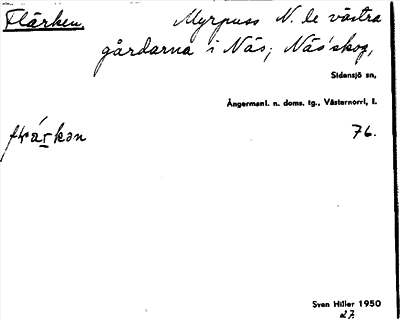 Flärken, Myrpuss N. le västra
gårdarna i Näs; Näs'skog,
Sidensjö sn,
Ångermanl. n. doms. tg., Västernorrl, l.
76.
Sven Hiller 1950
27.